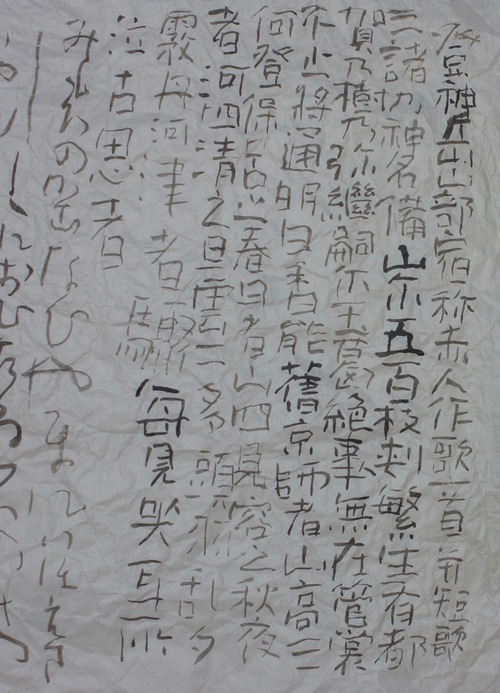 登神岳山部宿祢赤人作歌一首并短歌
三諸乃神名備山尓五百枝刺繁生有都
賀乃樹乃弥繼嗣尓玉葛絶事無在管裳
不止將通明日香能舊京師者山高三
河登保志呂之春日者山四見容之秋夜
者河四清之旦雲二多頭羽乱夕
霧丹河津者驟毎見哭耳所
泣古思者
みもろの神なびやまにいほえさ